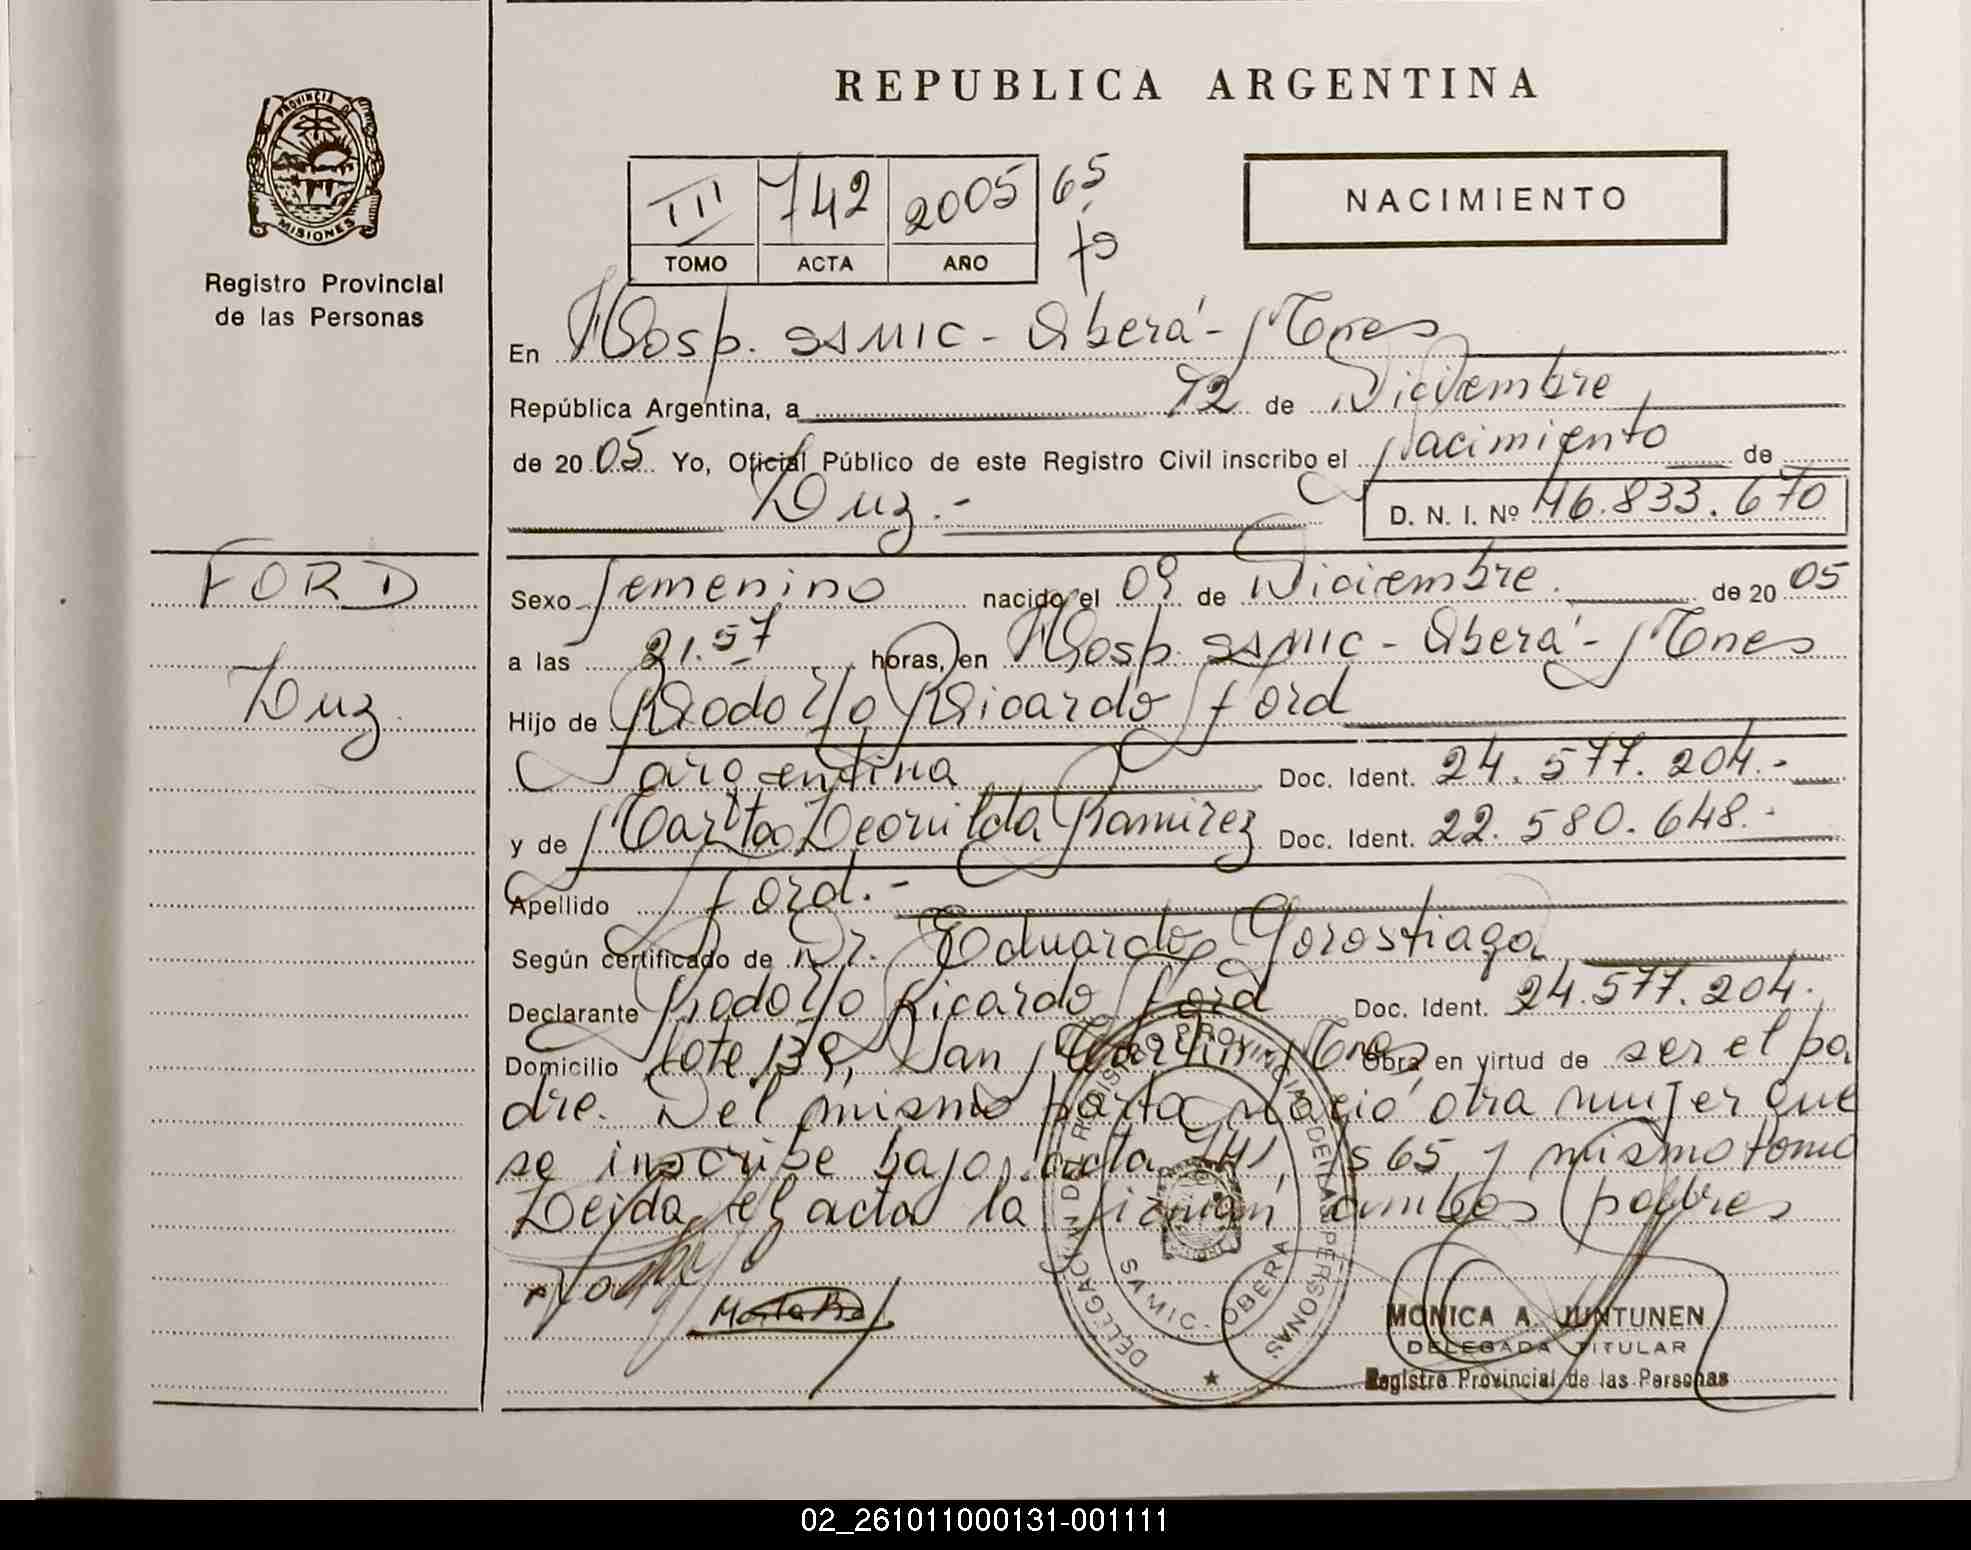 REPUBLICA ARGENTINA
PROVINCIA DE
MISIONES
Registro Provincial
de las Personas
III 742 2005 65
TOMO ACTA AÑO fs
NACIMIENTO
En Hosp. SAMIC - Oberá - Mnes
República Argentina, a 12 de Diciembre
de 20 05 Yo, Oficial Público de este Registro Civil inscribo el Nacimiento de
Luz.-
D. N. I. Nº 46.833.670
FORD
Luz.
Sexo femenino nacido el 09 de Diciembre. de 20 05
a las 21.57 horas, en Hosp. SAMIC - Oberá - Mnes
Hijo de Rodolfo Ricardo Ford
argentina Doc. Ident. 24.577.204.-
y de Marta Ramirez Doc. Ident. 22.580.648.-
Apellido Ford.-
Según certificado de Dr. Eduardo Gorostiaga
Declarante Rodolfo Ricardo Ford Doc. Ident. 24.577.204.
Domicilio lote 139, San Martin, Mnes Obra en virtud de ser el pa
dre. Del mismo parto nació otra mujer que
se inscribe bajo acta 741, fs 65 y mismo tomo
Leida el acta la firman ambos padres
DELEGACION DEL REGISTRO PROVINCIAL DE LAS PERSONAS
SAMIC - OBERA
MONICA A. JUNTUNEN
DELEGADA TITULAR
Registro Provincial de las Personas
02_261011000131-001111